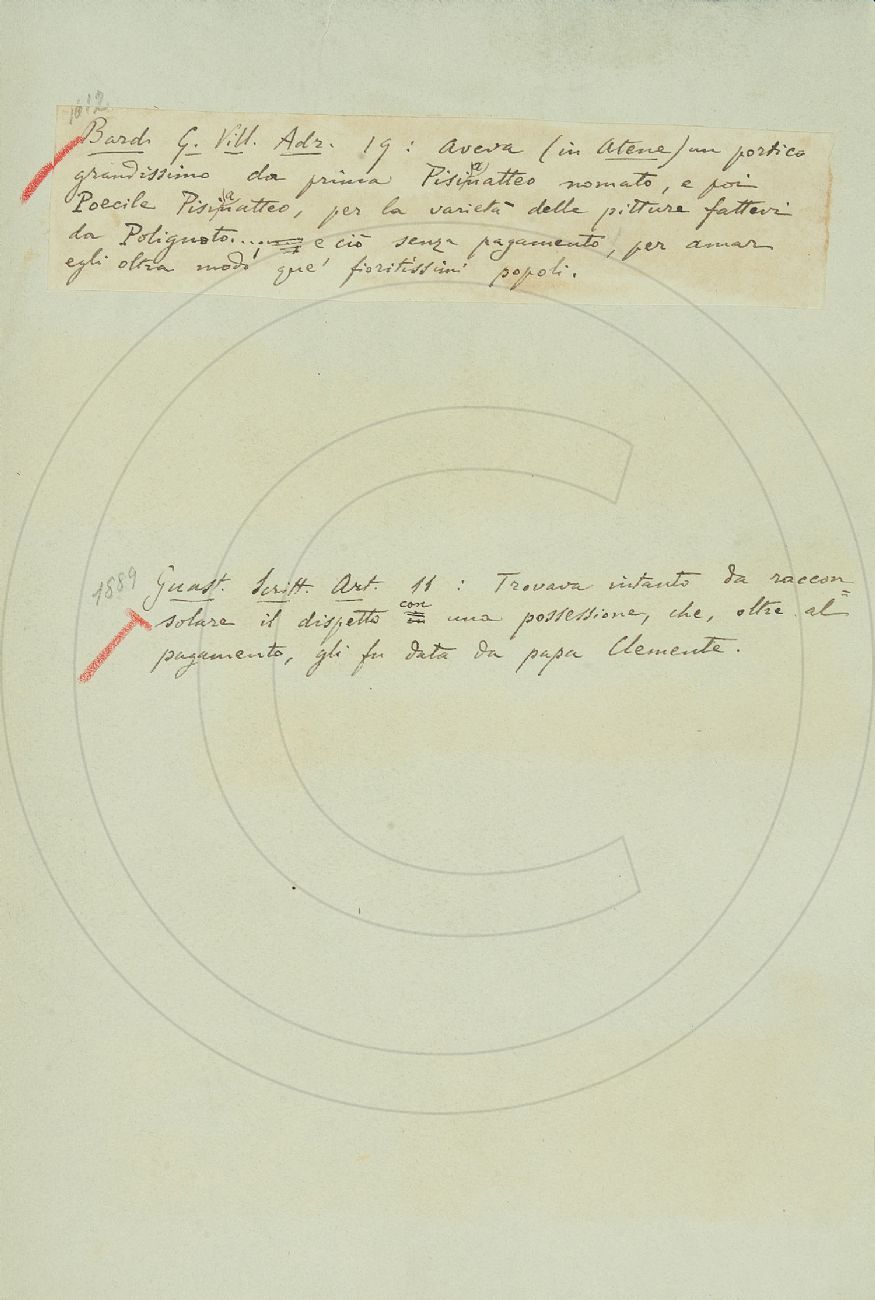 1612
Bardi G. Vill. Adr. 19: Aveva (in Atene) un portico
grandissimo da prima Pisinatteo nomato, e poi
Poecile Pisinatteo, per la varietà delle pitture fattevi
da Polignoto..... e ciò senza pagamento, per amar
egli oltra modo que' fioritissimi popoli.
1889
Guast. Scritt. Art. 11: Trovava intanto da raccon=
solare il dispetto con una possessione, che, oltre al
pagamento, gli fu data da papa Clemente.